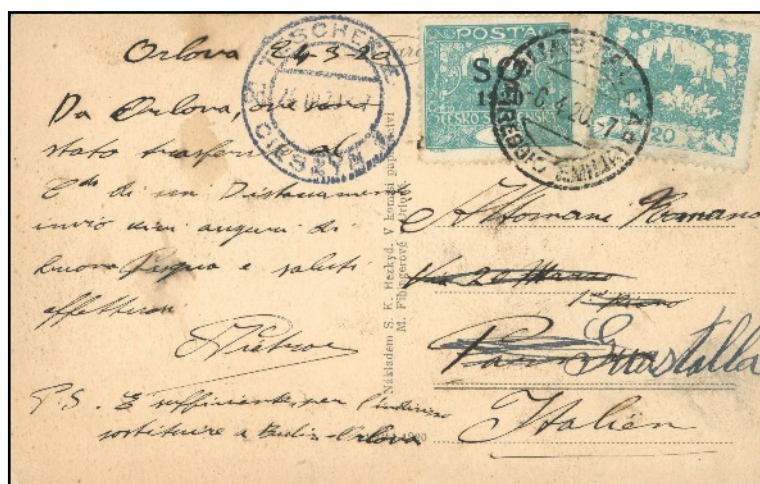 Orlova 24-3-20
Da Orlova, ove sono
stato trasferito al
C.do di un Distaccamento
invio vivi auguri di
buona Pasqua e saluti
affettuosi
P.S. È sufficiente per l'indirizzo
sostituire a Orlova
TESCHEN
CIESZYN
POSTA
SO
1920
ČESKO-SLOVENSKÁ
POSTA
20
6.4.20
Nákladem S. K. Hezkyd. V komisi
M. Fibingerové Orlová
Altomani Romano
Via 20 Marzo
1° Piano
Guastalla
Italien
1920